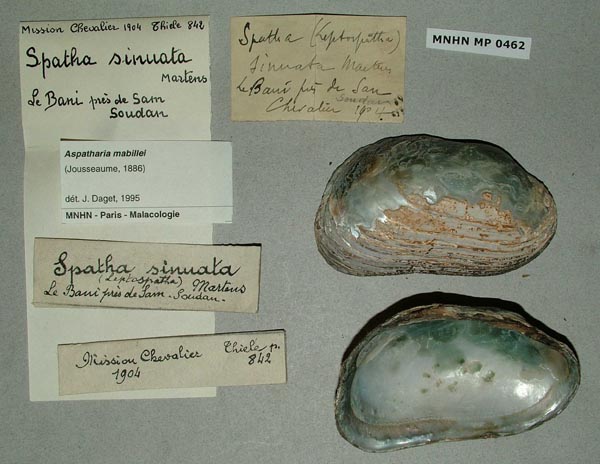 Mission Chevalier 1904 Thiele 842
Spatha sinuata
Martens
Le Bani près de Sam
Soudan
Aspatharia mabillei
(Jousseaume, 1886)
dét. J. Daget, 1995
MNHN - Paris - Malacologie
Spatha sinuata
(Leptospatha) Martens
Le Bani près de Sam - Soudan -
Mission Chevalier Thiele p.
1904 842
Spatha (Leptospatha)
Sinuata Martens
Le Bani près de San
Soudan
Chevalier 1904
MNHN MP 0462